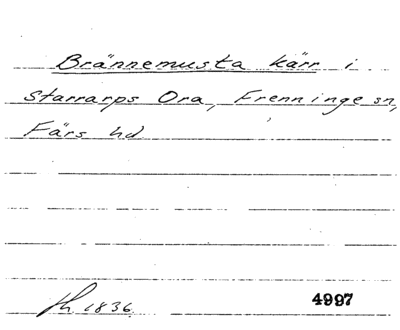 Brännemusta kärr i
Starrarps Ora, Frenninge sn,
Färs hd
1836.
4997